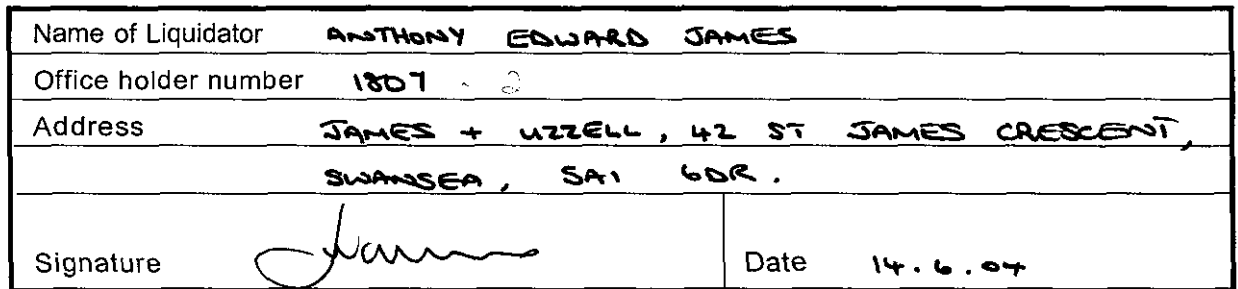 Name of Liquidator ANTHONY EDWARD JAMES
Office holder number 1807
Address JAMES + UZZELL, 42 ST JAMES CRESCENT,
SWANSEA, SA1 6DR.
Signature
Date 14.6.04